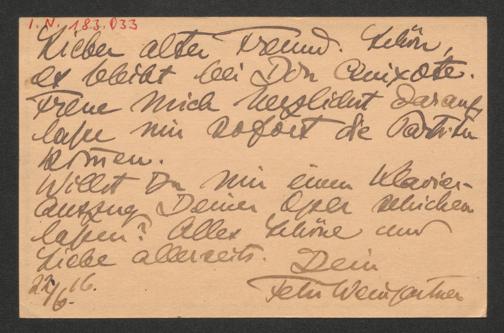 I.N. 183.033
Lieber alter Freund. Schön,
es bleibt bei Don Quixote.
Freue mich herzlichst darauf
lasse mir sofort die Partitur
kommen.
Willst Du mir einen Klavier-
auszug Deiner Oper schicken
lassen? Alles Schöne und
Liebe allerseits. Dein
22/6.16. Felix Weingartner